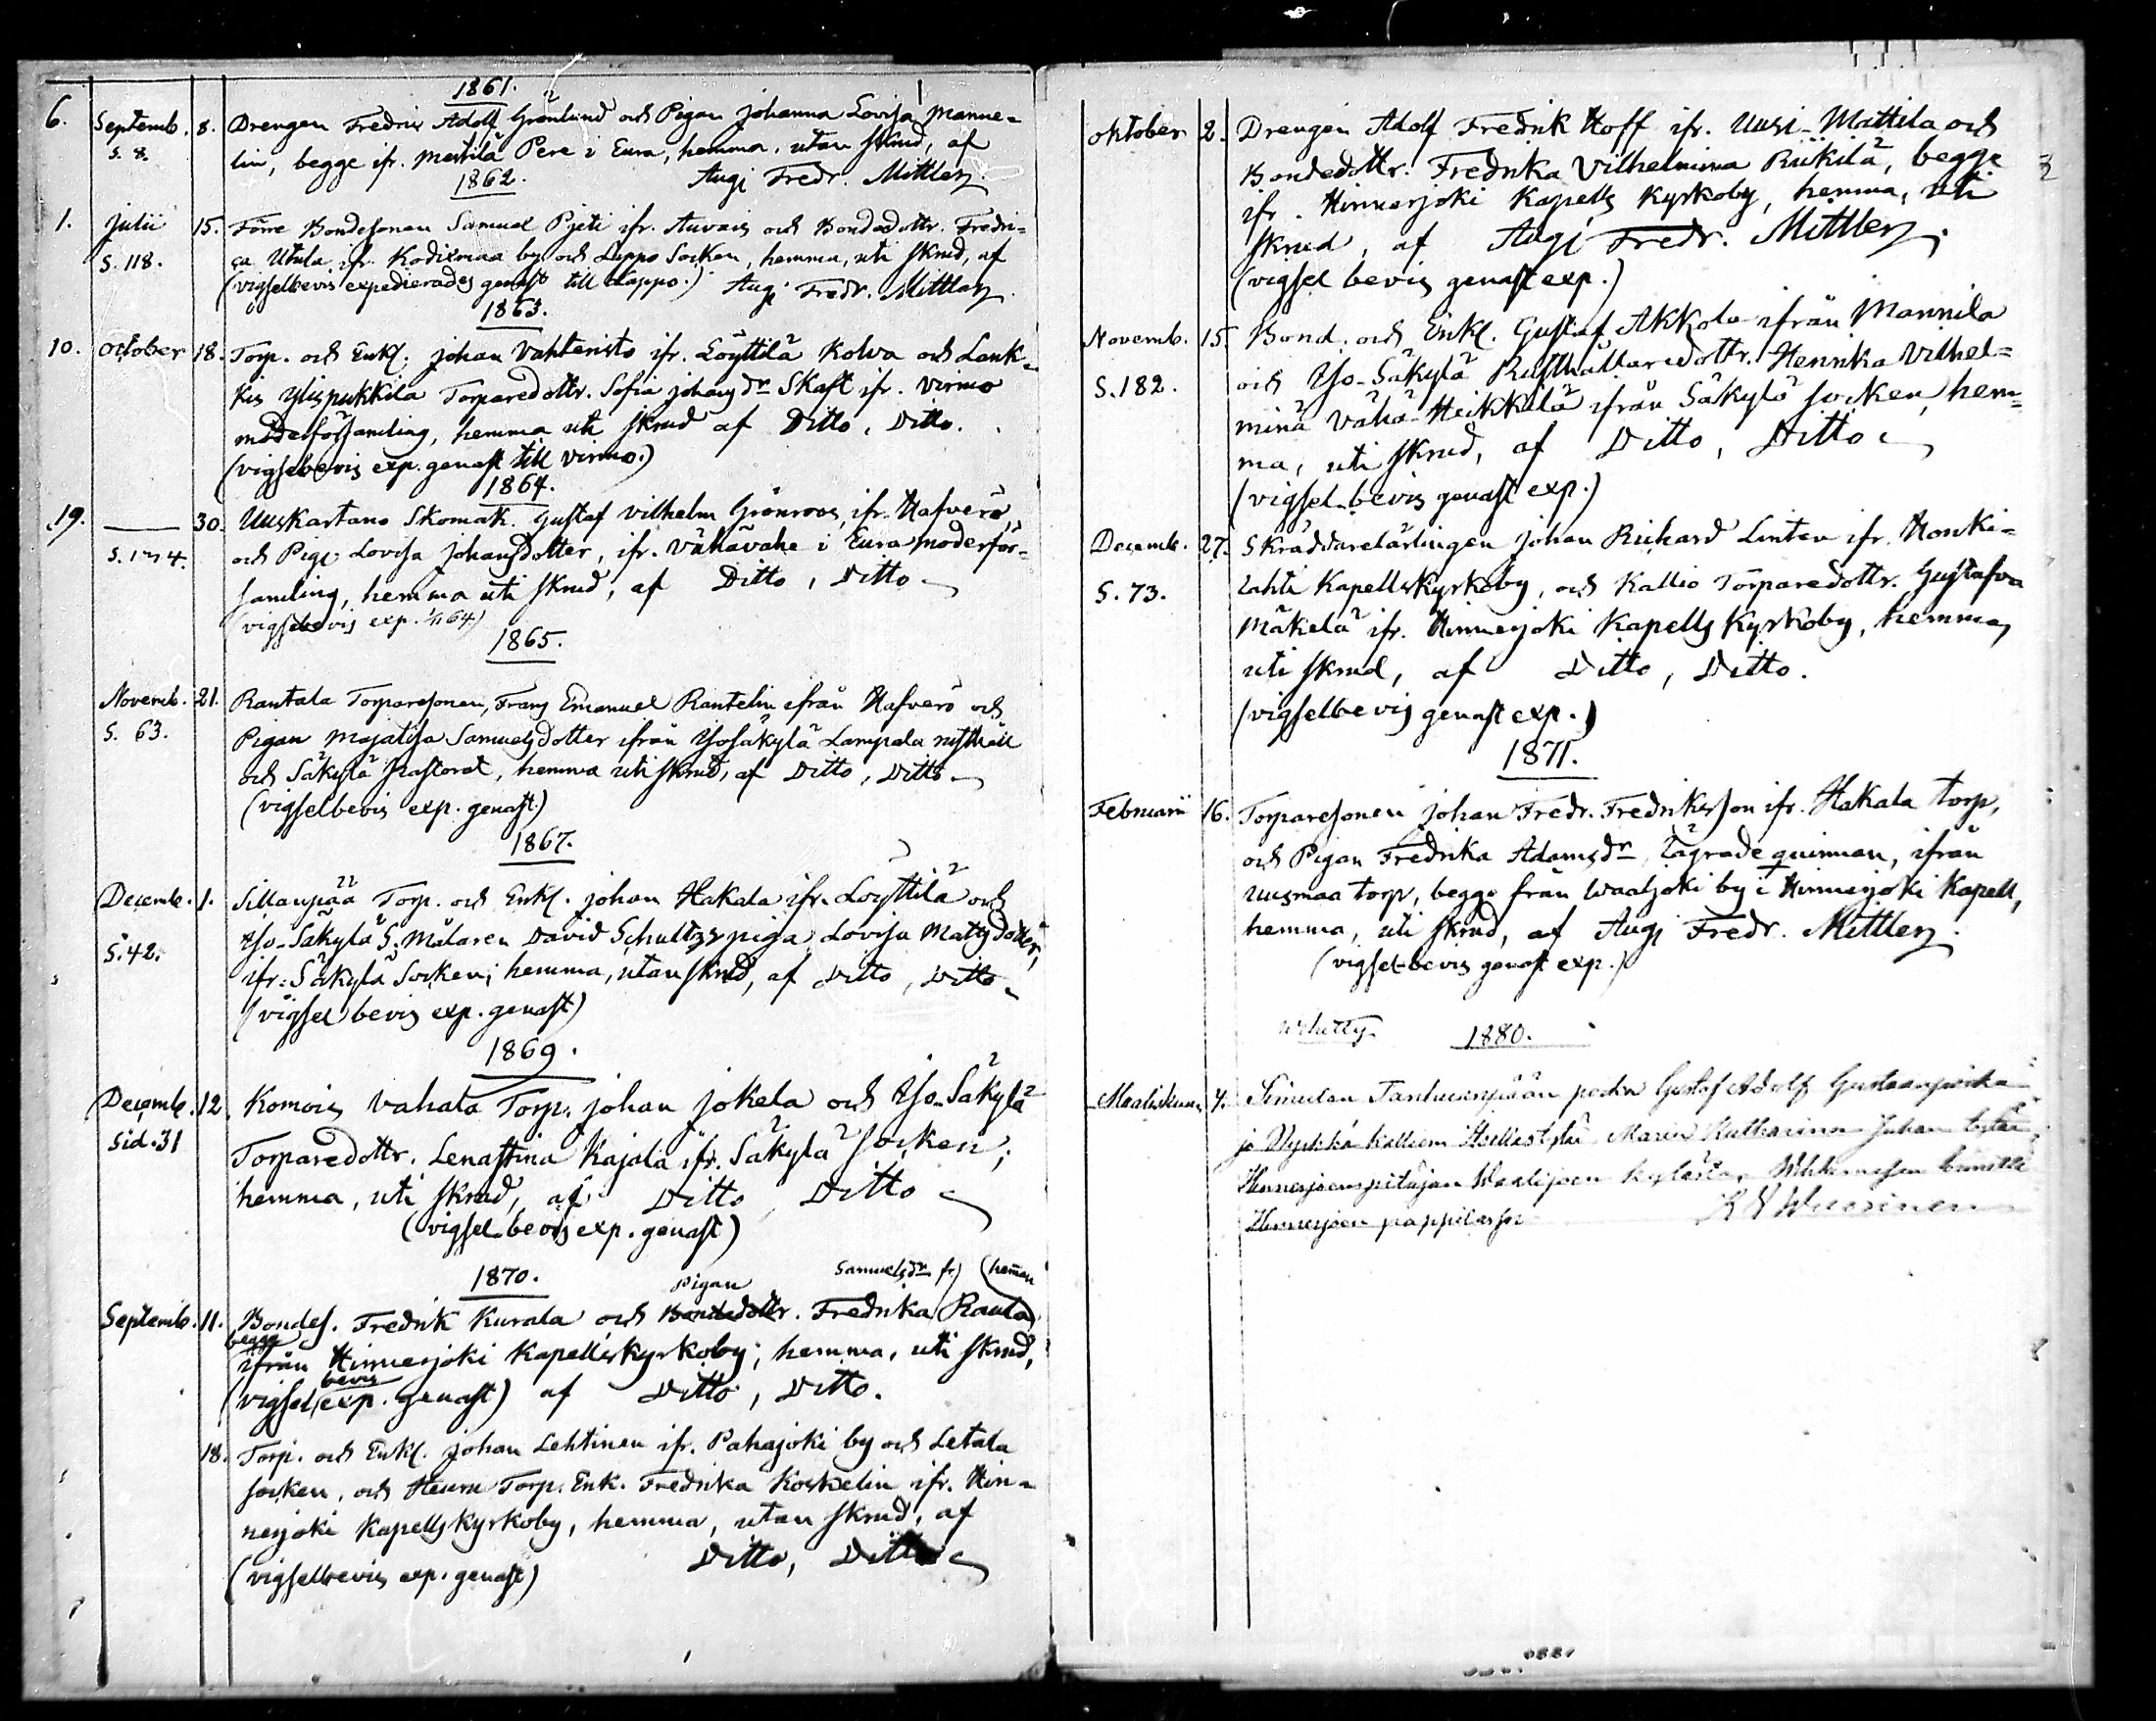 1861.
6. Septemb. 8. Drengen Fredric Adolf Grönlund och Pigan Johanna Lovisa Manne-
S. 8. lin, begge ifr. Mestilä Pere i Eura, hemma, utan skrud, af
Augi Fredr. Mittler.
1862.
1. Julii 15. Förre Bondesonen Samuel Pjeti ifr. Auvais och Bondedottr. Fredri-
S. 118. ca Utula ifr. Kodixmaa by och Lappo Socken, hemma, uti skrud, af
(vigselbevis expedierades genast till Lappo.) Augi Fredr. Mittler.
1863.
10. October 18. Torp. och Enkl. Johan Vahteristo ifr. Löyttilä Kolva och Lank-
kis Ylispukkila Torparedottr. Sofia Johansdr Skaft ifr. Virmo
moderförsamling, hemma uti skrud af Ditto, Ditto.
(vigselbevis exp. genast till Virmo.)
1864.
19. — 30. Uuskartano Skomak. Gustaf Vilhelm Grönroos, ifr. Hafverö,
S. 174. och Piga Lovisa Johansdotter, ifr. Vähävahe i Eura moderför-
samling, hemma uti skrud, af Ditto, Ditto
(vigselbevis exp. 1/11 64)
1865.
Novemb. 21. Rantala Torparesonen, Frans Emanuel Rantelin ifrån Hafverö och
S. 63. Pigan Majalisa Samuelsdotter ifrån Ysosäkylä Lampala rusthåll
och Säkylä pastorat, hemma uti skrud, af Ditto, Ditto
(vigselbevis exp. genast.)
1867.
Decemb. 1. Sillanpää Torp. och Enkl. Johan Hakala ifr. Löyttilä och
S. 42. Yso-Säkylä S. Målaren David Schultzs piga Lovisa Matsdotter,
ifr. Säkylä Socken; hemma, utan skrud, af Ditto, Ditto
(vigsel bevis exp. genast)
1869.
Decemb. 12. Komois Vahala Torp. Johan Jokela och Yso-Säkylä
Sid. 31 Torparedottr. Lenastina Kajala ifr. Säkylä Socken;
hemma, uti skrud, af Ditto Ditto
(vigsel-bevis exp. genast)
1870. Pigan Samuelsdr fr) (heman
Septemb. 11. Bondes. Fredrik Kurala och Bondedottr. Fredrika Raula
begge
ifrån Hinnerjoki Kapellskyrkoby; hemma, uti skrud,
bevis
(vigsel exp. genast) af Ditto, Ditto.
18. Torp. och Enkl. Johan Lehtinen ifr. Pahajoki by och Letala
socken, och Heuru Torp. Enk. Fredrika Koskelin ifr. Hin-
nerjoki Kapells Kyrkoby, hemma, utan skrud, af
(vigselbevis exp. genast) Ditto, Ditto
Oktober 2. Drengen Adolf Fredrik Hoff ifr. Uusi-Mattila och
Bondedottr. Fredrika Vilhelmina Riikilä, begge
ifr. Hinnerjoki Kapells Kyrkoby, hemma, uti
skrud, af Augi Fredr. Mittler.
(vigsel bevis genast exp.)
Novemb. 15. Bond. och Enkl. Gustaf Akkola ifrån Mannila
S. 182. och Yso-Säkylä Rusthållaredottr. Henrika Vilhel-
mina Vähä-Heikkilä ifrån Säkylä socken, hem-
ma, uti skrud, af Ditto, Ditto
(vigsel-bevis genast exp.)
Decemb. 27. Skräddarelärlingen Johan Richard Linten ifr. Honki-
S. 73. lahti Kapellskyrkoby, och Kallio Torparedottr. Gustafva
Mäkelä ifr. Hinnerjoki Kapells Kyrkoby, hemma,
uti skrud, af Ditto, Ditto.
(vigselbevis genast exp.)
1871.
Februarii 16. Torparesonen Johan Fredr. Fredriksson ifr. Hakala torp,
och Pigan Fredrika Adamsdr, lägrade quinnan, ifrån
Uusmaa torp, begge från Waaljoki by i Hinnerjoki Kapell,
hemma, uti skrud, af Augi Fredr. Mittler.
(vigsel-bevis genast exp.)
Wihitty 1880.
Maaliskuun 4. Simulan Tanhuanpään Gustaf Adolf Gustaanpoika
ja Maria Katharina Juhan tytär,
Hinnerjoen pitäjän Waalijoen kylästä,
Hinnerjoen pappilassa